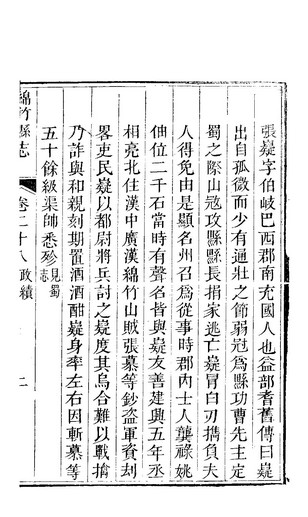 張嶷字伯岐巴西郡南充國人也益部耆舊傳曰嶷
出自孤微而少有通壯之節弱冠爲縣功曹先主定
蜀之際山寇攻縣縣長捐家逃亡嶷冒白刃攜負夫
人得免由是顯名州召爲從事時郡內士人龔祿姚
伷位二千石當時有聲名皆與嶷友善建興五年丞
相亮北住漢中廣漢綿竹山賊張慕等鈔盜軍資刼
畧吏民嶷以都尉將兵討之嶷度其烏合難以戰擒
乃詐與和親刻期置酒酒酣嶷身率左右因斬慕等
五十餘級渠帥悉殄見蜀志
綿竹縣志
卷二十八 政績
二